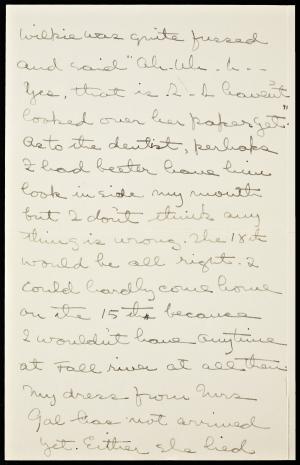 Wilkie was quite fussed
and said "Ah. Uh. I---
Yes, that is I - I haven't
looked over her paper yet."
As to the dentist, perhaps
I had better have him
look in side my mouth
but I don't think any
thing is wrong. The 18th
would be all right. I
could hardly come home
on the 15th because
I wouldn't have anytime
at Fall river at all then
My dress from Mrs
Gal has not arrived
yet. Either she lied